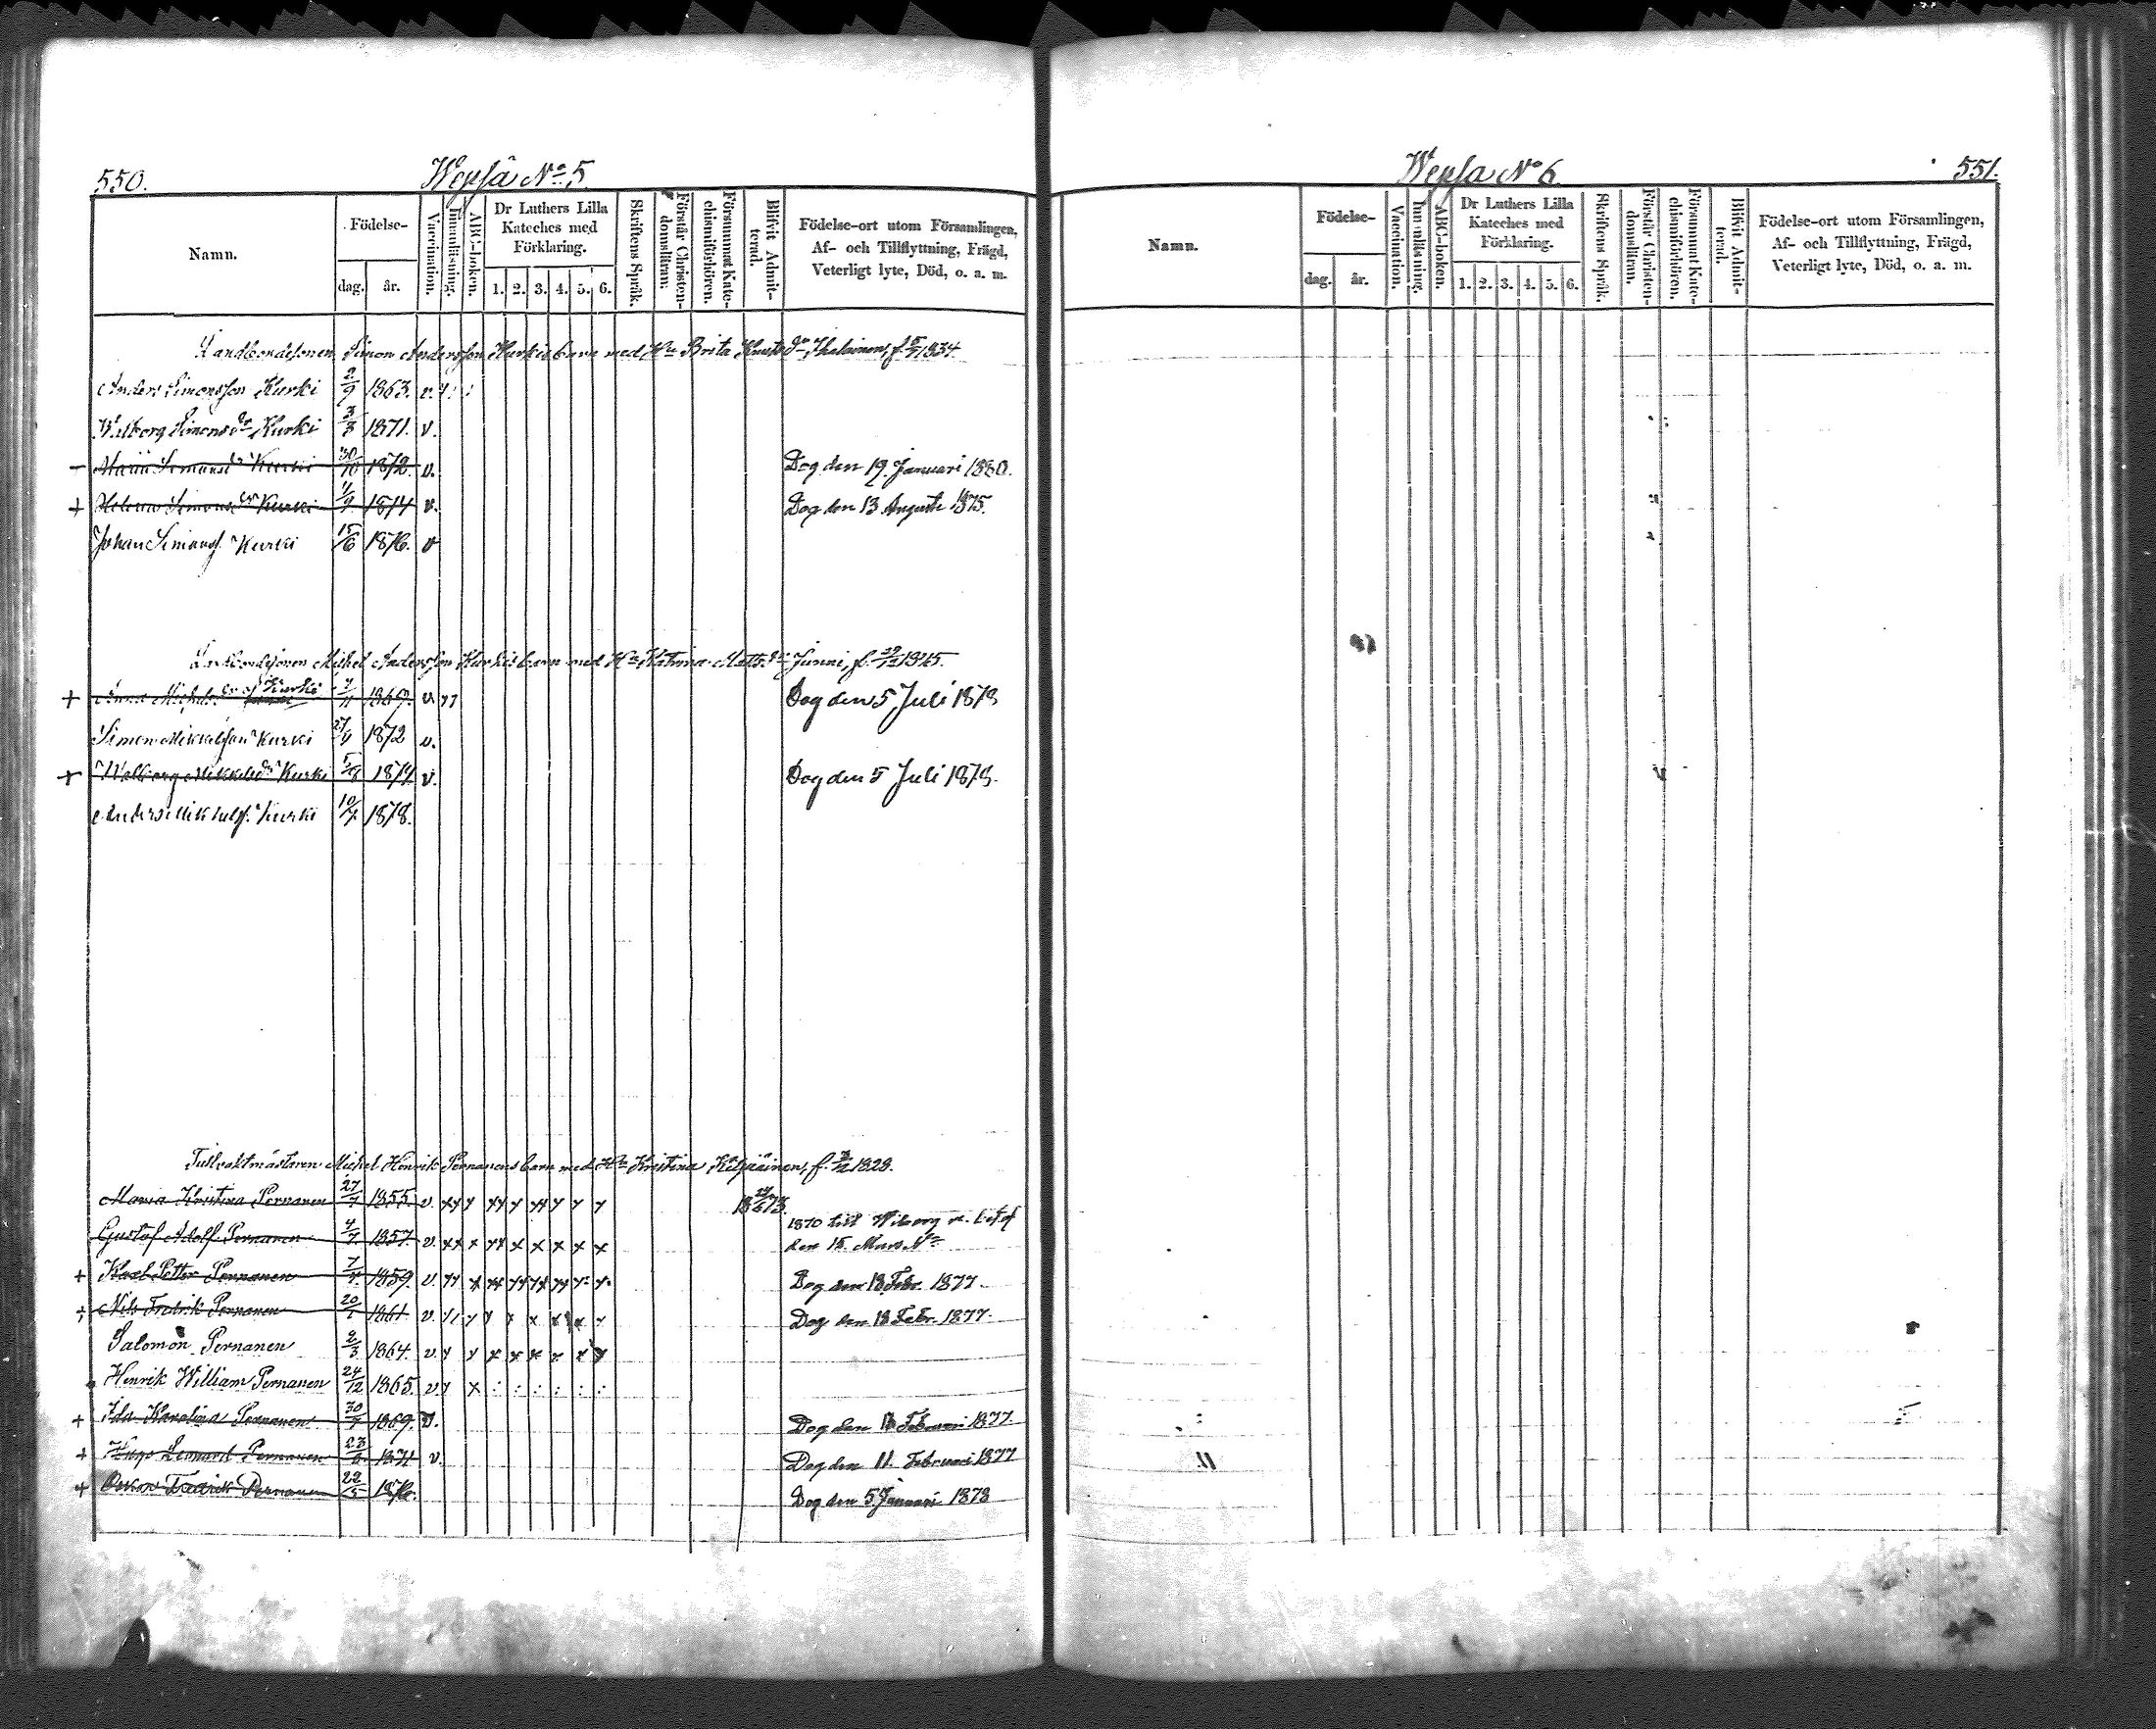 550.
Wepsä No 5.
Namn.
Födelse-
dag.
år.
Vaccination.
Innanläsning.
ABC-boken.
Dr Luthers Lilla
Kateches med
Förklaring.
1. 2. 3. 4. 5. 6.
Skriftens Språk.
Förstår Christen-
domsläran.
Försummat Kate-
chismiförhören.
Blifvit Admit-
terad.
Födelse-ort utom Församlingen,
Af- och Tillflyttning, Frägd,
Veterligt lyte, Död, o. a. m.
Landbondesonen Simon Andersson Kurkis barn med Brita Ihalainen, f. 1834.
Anders Simonsson Kurki 2/9 1863. v.
Walborg Simonsdr Kurki 3/3 1871. v.
Maria Simonsdr Kurki 30/10 1872. v. Dog den 19. Januari 1880.
Helena Simonsdr Kurki 1/9 1874 v. Dog den 13 Augusti 1875.
Johan Simonss. Kurki 15/6 1876. v
Landbondesonen Michel Andersson Kurkis barn med Hu Katrina Mattsdr Junni, f. 1845.
Anna Michelsdr Kurki 1869. v. Dog den 5 Juli 1878
Simon Mikkelsson Kurki 27/ 1872 v.
Walborg Mikkelsdr Kurki 5/8 1874 v. Dog den 5 Juli 1878.
Anders Mikkelss. Kurki 10/7 1878.
Tullvaktmästaren Michel Henrik Pernanens barn med Hu Kristina f. 1828.
Maria Kristina Pernanen 27/7 1855. v.
Gustaf Adolf Pernanen 4/7 1857. v. 1870 till Wiborg
den 15. Mars No
Karl Petter Pernanen 1859. v. Dog den 13 Febr. 1877.
Nils Fredrik Pernanen 1861. v. Dog den 13 Febr. 1877.
Salomon Pernanen 2/3 1864. v.
Henrik William Pernanen 24/12 1865. v
Ida Karolina Pernanen 30/7 1869. v. Dog den Februari 1877.
Hugo Lennard Pernanen 23/ 1871 v. Dog den 11. Februari 1877
Oskar Fredrik Pernanen 22/5 1876. Dog den 5 Januari 1878
Wepsä No 6.
551.
Namn.
Födelse-
dag.
år.
Vaccination.
Innanläsning.
ABC-boken.
Dr Luthers Lilla
Kateches med
Förklaring.
1. 2. 3. 4. 5. 6.
Skriftens Språk.
Förstår Christen-
domsläran.
Försummat Kate-
chismiförhören.
Blifvit Admit-
terad.
Födelse-ort utom Församlingen,
Af- och Tillflyttning, Frägd,
Veterligt lyte, Död, o. a. m.